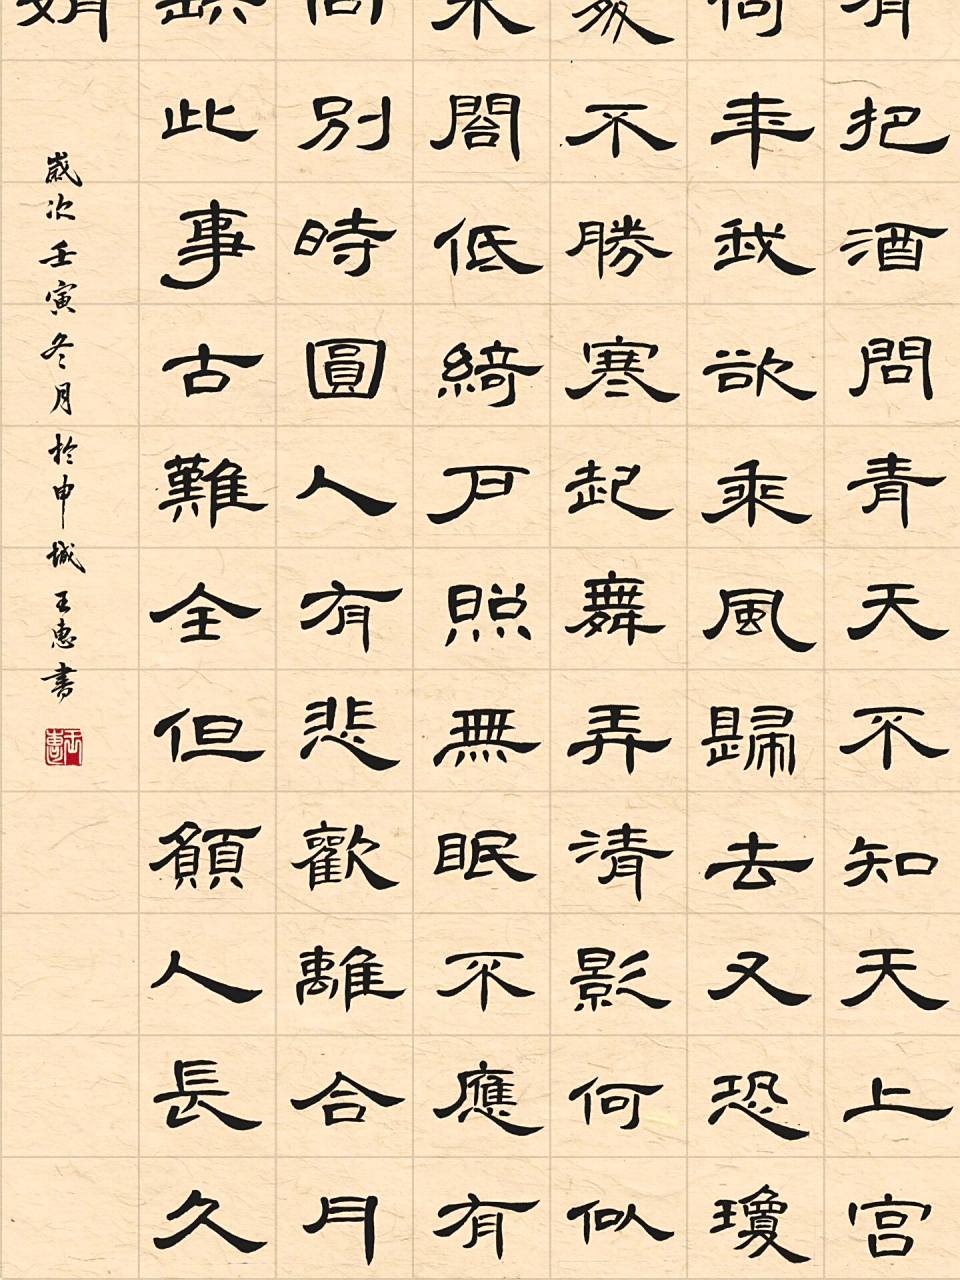 有把酒問青天不知天上宮
何年我欲乘風歸去又恐瓊
處不勝寒起舞弄清影何似
朱閣低綺戶照無眠不應有
向別時圓人有悲歡離合月
缺此事古難全但願人長久
娟
歲次壬寅冬月於申城王惠書
王惠